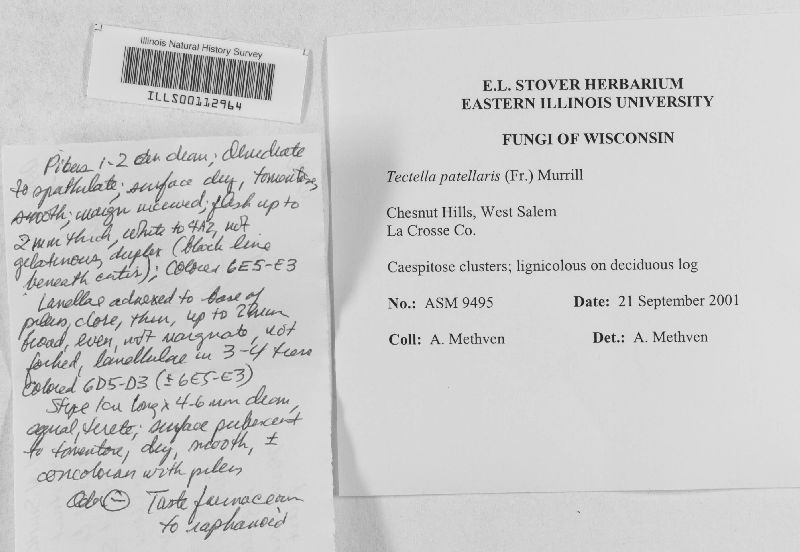 Illinois Natural History Survey
ILLS00112964
Pileus 1-2 cm diam; dimidiate
to spathulate; surface dry, tomentose,
smooth; margin incurved; flesh up to
2mm thick, white to 4A2, not
gelatinous, duplex (black line
beneath cutis); colored 6E5-E3
Lamellae adnexed to base of
pileus, close, thin, up to 2mm
broad, even, not marginate, not
forked, lamellulae in 3-4 tiers
colored 6D5-D3 (±6E5-E3)
Stipe 1cm long x 4-6 mm diam,
equal, terete; surface pubescent
to tomentose, dry, smooth, ±
concolorous with pileus
Odor (-) Taste farinaceous
to raphanoid
E.L. STOVER HERBARIUM
EASTERN ILLINOIS UNIVERSITY
FUNGI OF WISCONSIN
Tectella patellaris (Fr.) Murrill
Chesnut Hills, West Salem
La Crosse Co.
Caespitose clusters; lignicolous on deciduous log
No.: ASM 9495 Date: 21 September 2001
Coll: A. Methven Det.: A. Methven